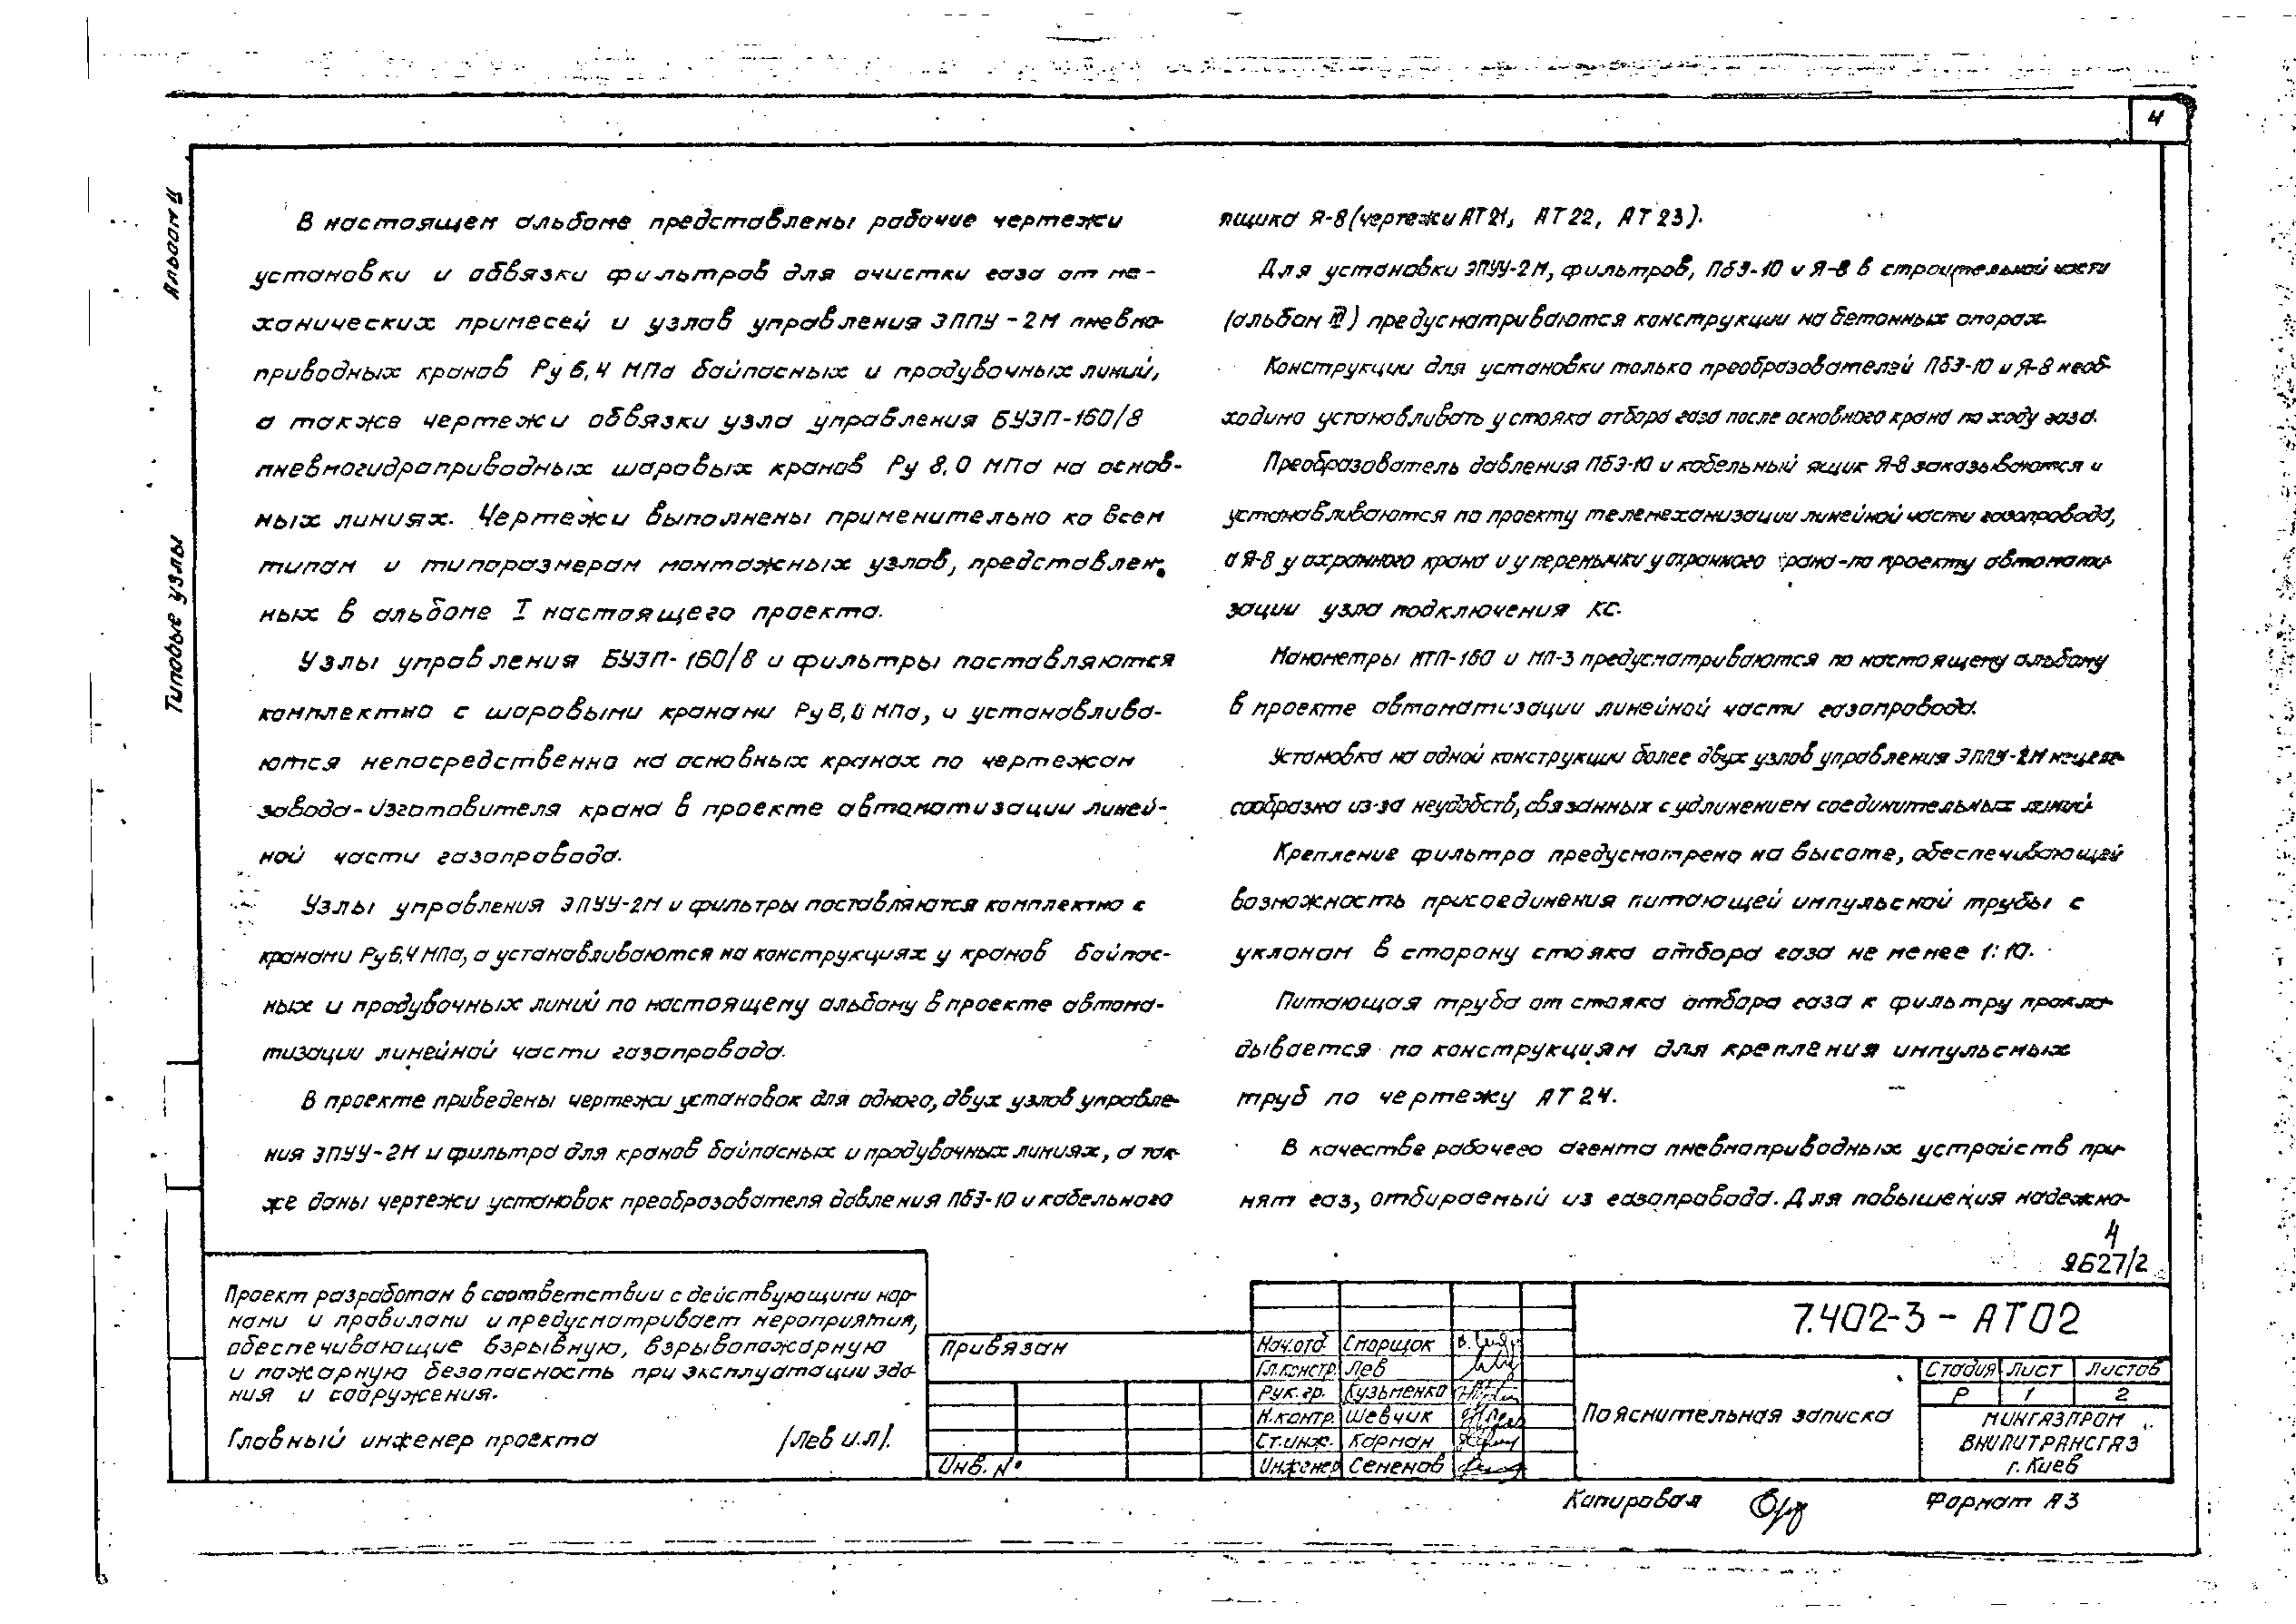 4
Альбом II
Типовые узлы
В настоящем альбоме представлены рабочие чертежи
установки и обвязки фильтров для очистки газа от ме-
ханических примесей и узлов управления ЭППУ-2М пневмо-
приводных кранов Ру 6,4 МПа байпасных и продувочных линий,
а также чертежи обвязки узла управления БУЭП-160/8
пневмогидроприводных шаровых кранов Ру 8,0 МПа на основ-
ных линиях. Чертежи выполнены применительно ко всем
типам и типоразмерам монтажных узлов, представлен-
ных в альбоме I настоящего проекта.
Узлы управления БУЭП-160/8 и фильтры поставляются
комплектно с шаровыми кранами Ру 8,0 МПа, и устанавлива-
ются непосредственно на основных кранах по чертежам
завода-изготовителя крана в проекте автоматизации линей-
ной части газопровода.
Узлы управления ЭПУУ-2М и фильтры поставляются комплектно с
кранами Ру 6,4 МПа, а устанавливаются на конструкциях у кранов байпас-
ных и продувочных линий по настоящему альбому в проекте автома-
тизации линейной части газопровода.
В проекте приведены чертежи установок для одного, двух узлов управле-
ния ЭПУУ-2М и фильтра для кранов байпасных и продувочных линиях, а так-
же даны чертежи установок преобразователя давления ПбЭ-10 и кабельного
ящика Я-8 (чертежи АТ21, АТ22, АТ23).
Для установки ЭПУУ-2М, фильтров, ПбЭ-10 и Я-8 в строительной части
(альбом III) предусматриваются конструкции на бетонных опорах.
Конструкции для установки только преобразователей ПбЭ-10 и Я-8 необ-
ходимо устанавливать у стояка отбора газа после основного крана по ходу газа.
Преобразователь давления ПбЭ-10 и кабельный ящик Я-8 заказываются и
устанавливаются по проекту телемеханизации линейной части газопровода,
а Я-8 у охранного крана и у перемычки у охранного крана-по проекту автомати-
зации узла подключения КС.
Манометры МТП-160 и МП-3 предусматриваются по настоящему альбому
в проекте автоматизации линейной части газопровода.
Установка на одной конструкции более двух узлов управления ЭППУ-2М нецеле-
сообразна из-за неудобств, связанных с удлинением соединительных линий.
Крепление фильтра предусмотрено на высоте, обеспечивающей
возможность присоединения питающей импульсной трубы с
уклоном в сторону стояка отбора газа не менее 1:10.
Питающая труба от стояка отбора газа к фильтру прокла-
дывается по конструкциям для крепления импульсных
труб по чертежу АТ24.
В качестве рабочего агента пневмоприводных устройств при-
нят газ, отбираемый из газопровода. Для повышения надежно-
4
9627/2
Проект разработан в соответствии с действующими нор-
мами и правилами и предусматривает мероприятия,
обеспечивающие взрывную, взрывопожарную
и пожарную безопасность при эксплуатации зда-
ния и сооружения.
Главный инженер проекта /Лев И.Л/.
Привязан
Инв. №
Нач.отд. Спорщок
Гл.констр. Лев
Рук.гр. Кузьменко
Н.контр. Шевчик
Ст.инж. Карман
Инженер Семенов
7.402-3 - АТ02
Пояснительная записка
Стадия Лист Листов
Р 1 2
МИНГАЗПРОМ
ВНИПИТРАНСГАЗ
г. Киев
Копировал
Формат А3